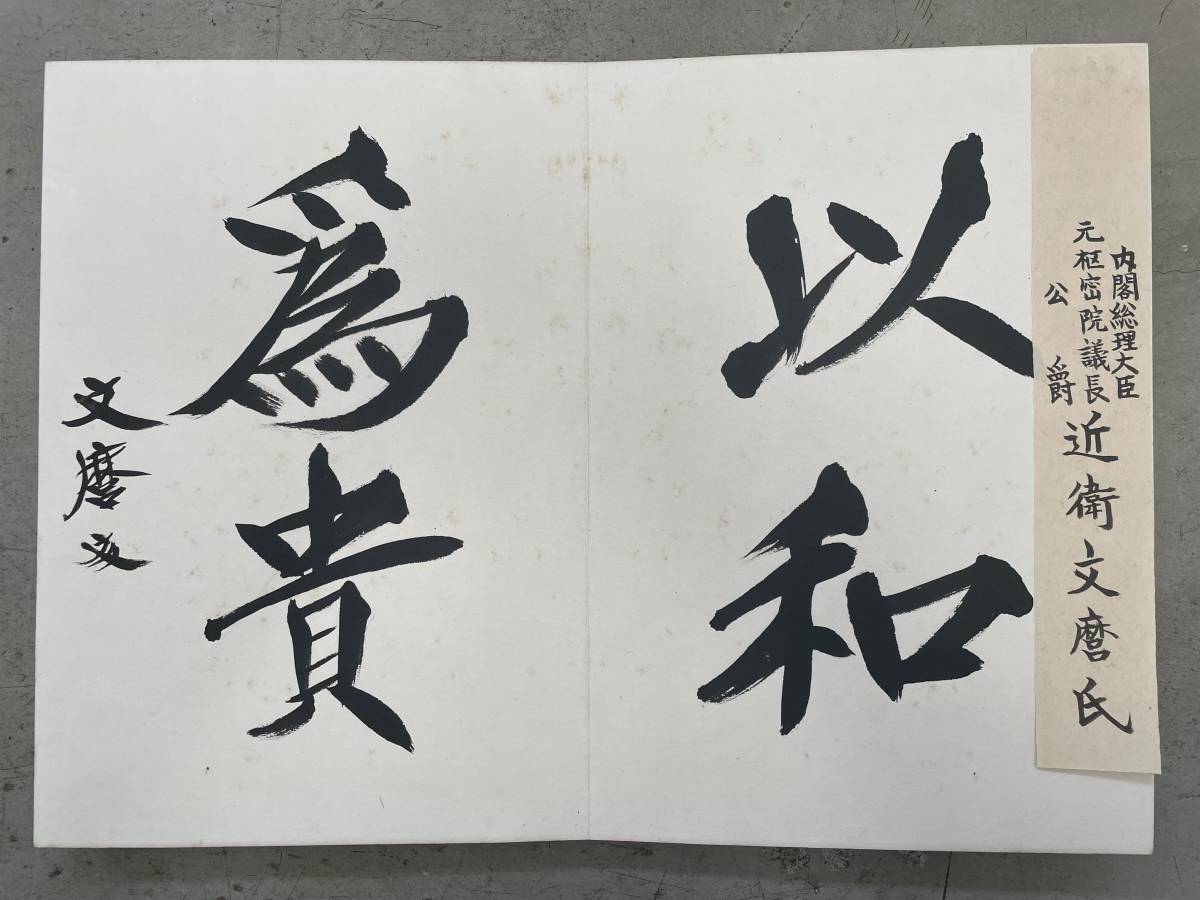 内閣総理大臣
元枢密院議長
公爵
近衛文麿氏
以和
為貴
文麿